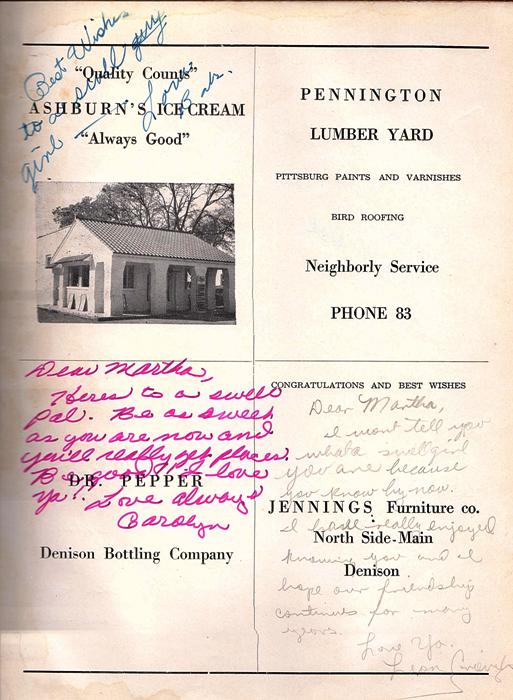 Best Wishes
to a swell guy
girl
Love
Bab.
"Quality Counts"
ASHBURN'S ICE CREAM
"Always Good"
PENNINGTON
LUMBER YARD
PITTSBURG PAINTS AND VARNISHES
BIRD ROOFING
Neighborly Service
PHONE 83
Dear Martha,
Heres to a swell
pal. Be as sweet
as you are now and
you'll really get places.
Be good, I love
ya! Love always
Carolyn
DR. PEPPER
Denison Bottling Company
CONGRATULATIONS AND BEST WISHES
Dear Martha,
I wont tell you
what a swell girl
you are because
you know by now.
I have really enjoyed
knowing you and I
hope our friendship
continues for many
years.
Love Ya.
JENNINGS Furniture co.
North Side-Main
Denison